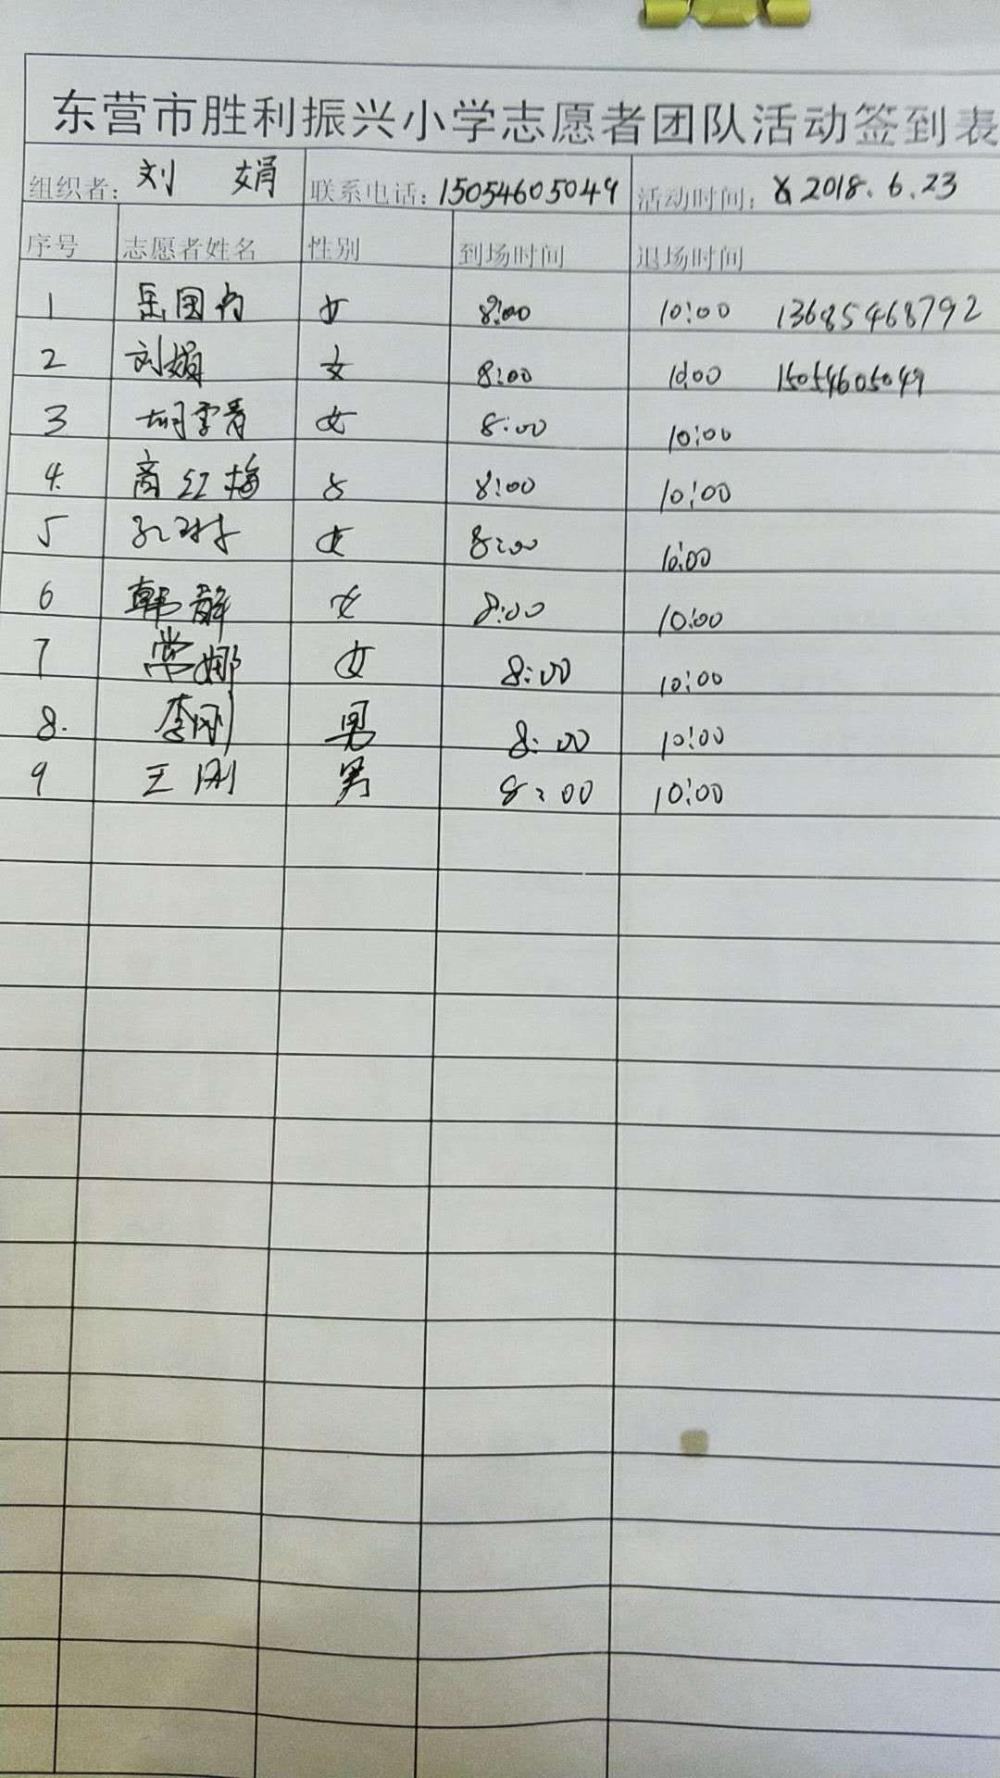 东营市胜利振兴小学志愿者团队活动签到表
组织者: 刘 娟 联系电话: 15054605049 活动时间: 2018.6.23
序号 志愿者姓名 性别 到场时间 退场时间
1 女 8:00 10:00 13685468792
2 刘娟 女 8:00 10:00 15054605049
3 胡雪青 女 8:00 10:00
4. 商红梅 女 8:00 10:00
5 女 8:00 10:00
6 韩静 女 8:00 10:00
7 常娜 女 8:00 10:00
8. 李刚 男 8:00 10:00
9 王刚 男 8:00 10:00